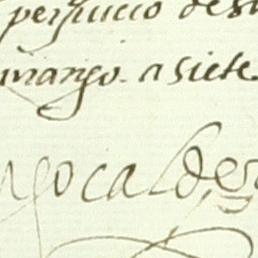 perjuicio de su
março. a siete
yo calder